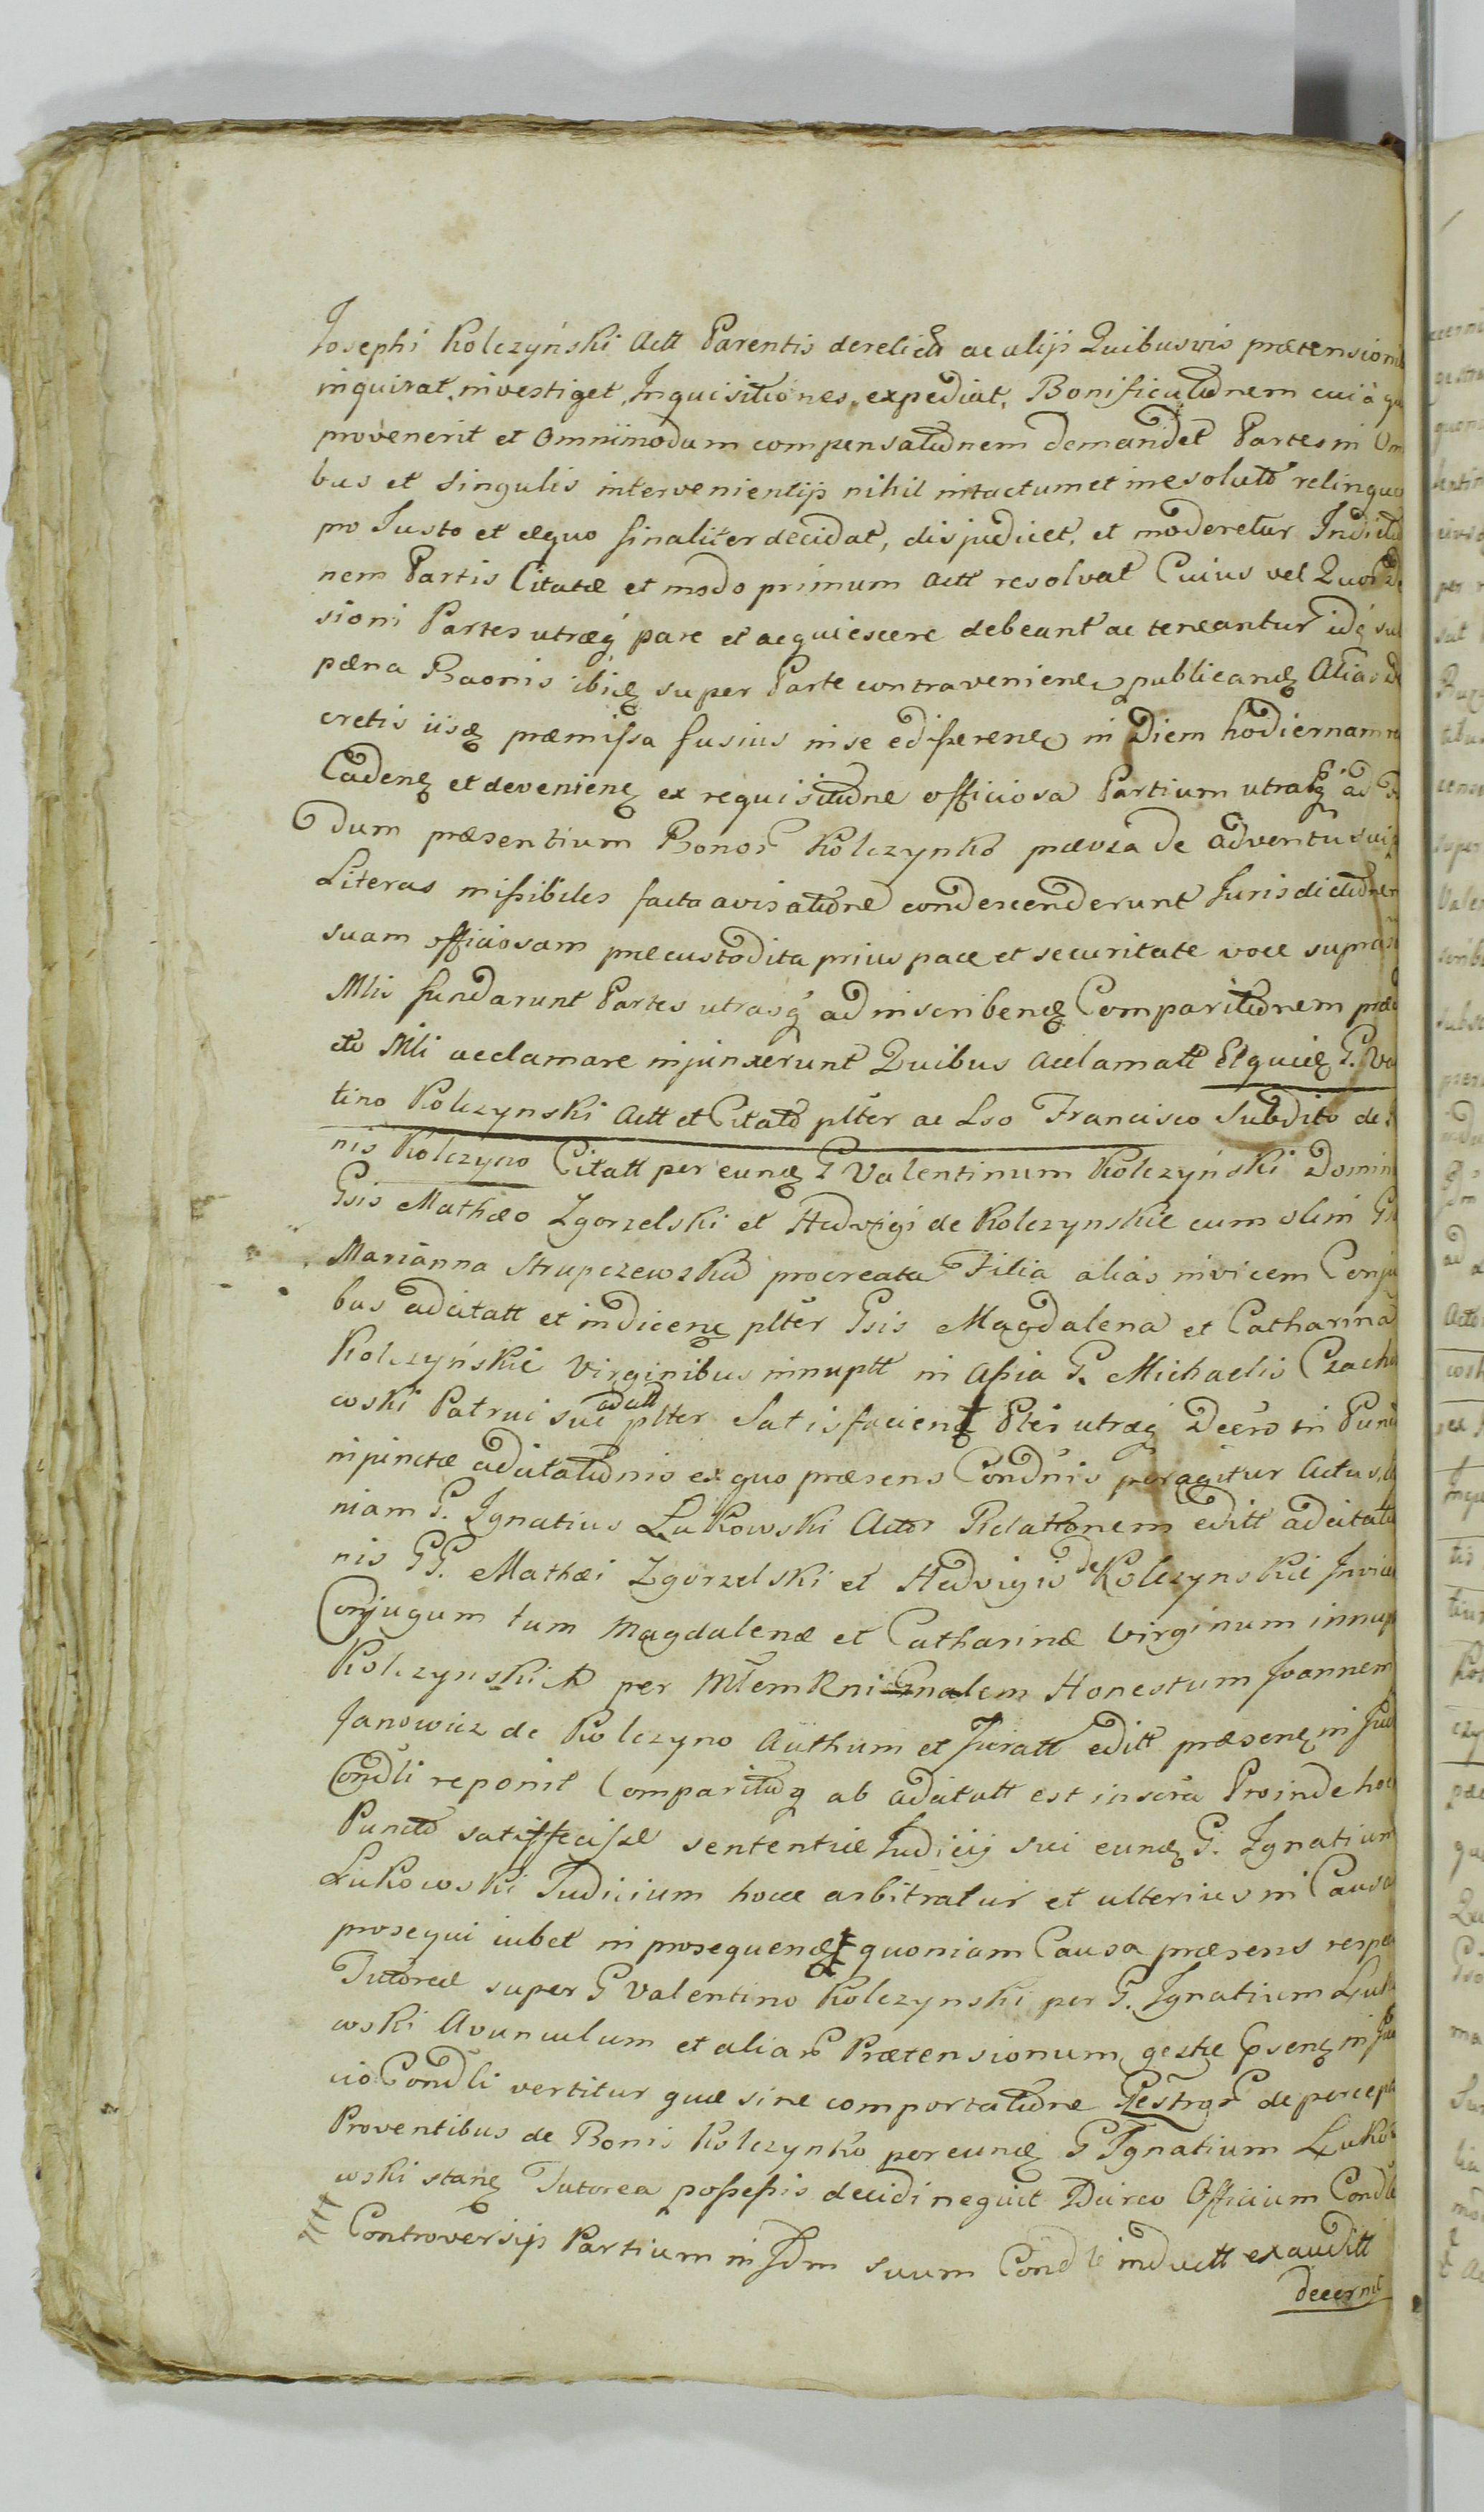 Josephi Kolczyński Actt Parentis derelicta ac alijs Quibusvis prætensioni
inquirat, investiget, Inquisitiones, expediat, Bonificatdnem cui à qu
provenerit et Omnimodam compensatdnem demandet Partes in Om
bus et singulis intervenientijs nihil intactum et inresolutd relinquo
pro Justo et æquo finaliter decidat, disjudicet, et moderetur Indictd
nem Partis Citatæ et modo primum actt resolvat Cuius vel Quor De
sioni Partes utræq pare et acquiescere debeant ac teneantur idq sub
pæna Baonis ibiq super Parte contravenienq publicanq Alias De
cretis iisq præmissa fusius in se edisserenq in Diem hodiernam re
Cadenq et devenienq ex requisitdne officiosa Partium utraq ad
dum præsentium Bonor Kolczynko prævia de adventu suis
Literas missibiles facta avisatdne condescenderunt Jurisdictdnem
suam officiosam præcustodita prius pace et securitate voce supra
Mlis fundarunt Partes utrasq ad inscribenq Comparitdnem præd
cto Mli acclamare injunxerunt Quibus acclamatt Elquiq G. Va
tino Kolczynski Actt et Citatd plter ac Lso Francisco Subdito de
nis Kolczyno Citatt per eunq G Valentinum Kolczyński Domin
Gsis Mathæo Zgorzelski et Hedvigi de Kolczynskie cum olim G
Marianna Strupczewska procreata Filia alias invicem Conju
bus adcitatt et indicenq plter Gsis Magdalena et Catharina
Kolczyńskie Virginibus innuptt in assia G. Michaelis Czacho
wski Patrui sui adatt plter Satisfacienq Pter utraq Decro in Punc
injunctæ adcitatdnis ex quo præsens Condnis peragitur Actus,
niam G. Ignatius Lukowski Actor Relationem editt adcitatd
nis GG. Mathæi Zgorzelski et Hedvigis de Kolczynskie Invice
Conjugum tum Magdalenæ et Catharinæ Virginum innup
Kolczynskich per Mlem Rni Gnalem Honestum Joannem
Janowicz de Kolczyno Authum et Juratt editt præsenq in Jud
Condli reponit Comparitdq ab adcitatt est inscra Proinde hoc
Punctd satisfecisse sententiæ Judicij sui eunq G. Ignatium
Lukowski Judicium hocce arbitratur et ulterius in Causa
prosequi iubet in prosequenq quoniam Causa præsens respec
Tutoreæ super G Valentino Kolczynski per G. Ignatium Luko
wski Avunculum et aliar Prætensionum gestæ Epsenq in Jud
cio Condli vertitur quæ sine comportatdne Restror de percept
Proventibus de Bonis Kolczynko per eunq G Ignatium Luko
wski stanq Tutorea possessis decidi nequit Decreo Officium Condle
Controversijs Partium in Jdm suum Condle inductt exauditt
decernit